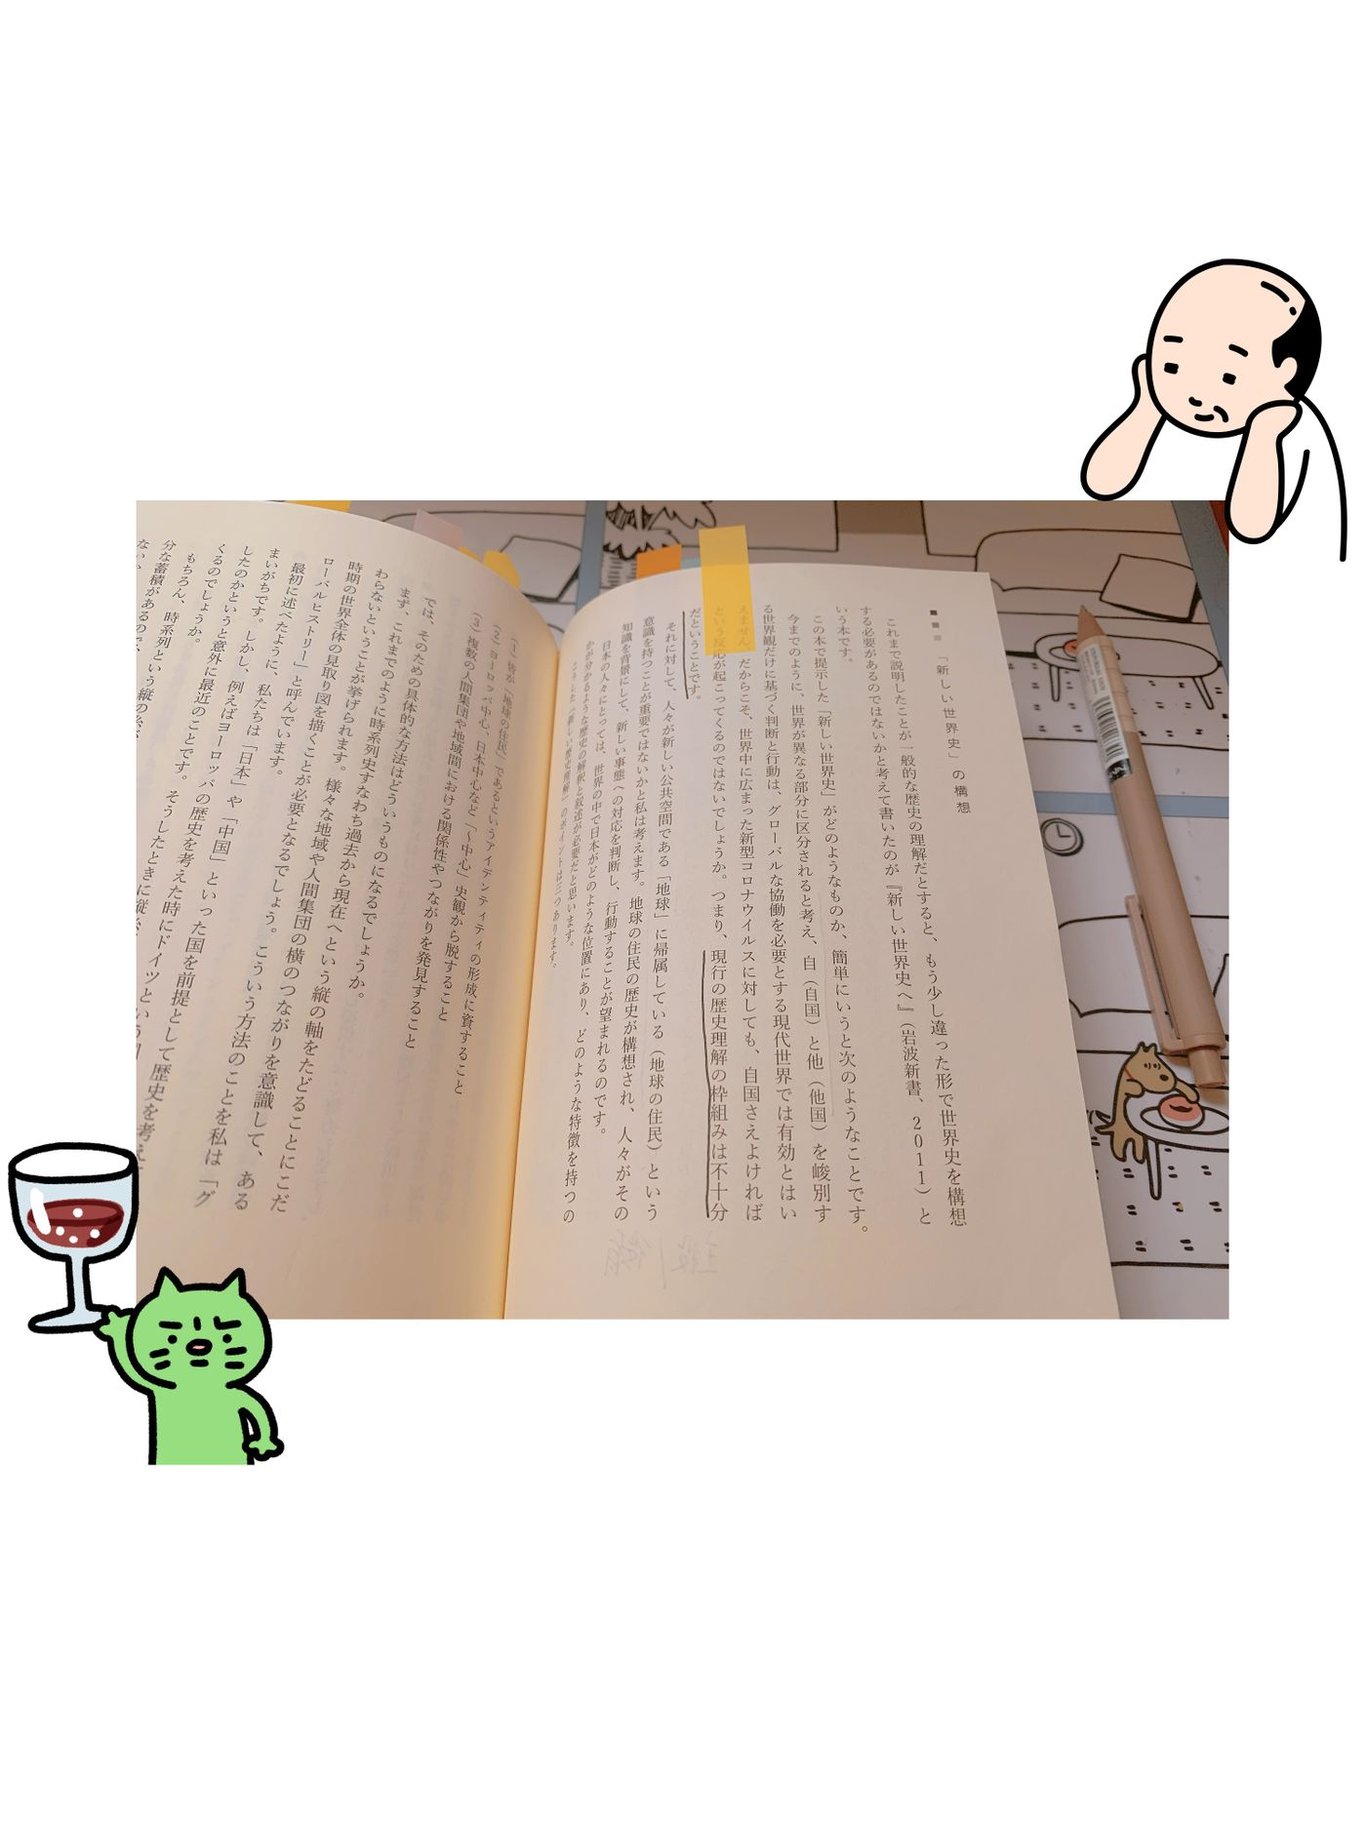 「新しい世界史」の構想
これまで説明したことが一般的な歴史の理解だとすると、もう少し違った形で世界史を構想
する必要があるのではないかと考えて書いたのが『新しい世界史へ』（岩波新書、2011）と
いう本です。
この本で提示した「新しい世界史」がどのようなものか、簡単にいうと次のようなことです。
今までのように、世界が異なる部分に区分されると考え、自（自国）と他（他国）を峻別す
る世界観だけに基づく判断と行動は、グローバルな協働を必要とする現代世界では有効とはい
えません。だからこそ、世界中に広まった新型コロナウイルスに対しても、自国さえよければ
という反応が起こってくるのではないでしょうか。つまり、現行の歴史理解の枠組みは不十分
だということです。
それに対して、人々が新しい公共空間である「地球」に帰属している（地球の住民）という
意識を持つことが重要ではないかと私は考えます。地球の住民の歴史が構想され、人々がその
知識を背景にして、新しい事態への対応を判断し、行動することが望まれるのです。
日本の人々にとっては、世界の中で日本がどのような位置にあり、どのような特徴を持つの
かが分かるような歴史の解釈と叙述が必要だと思います。
こうした「新しい歴史理解」のポイントは三つあります。
（1）皆が「地球の住民」であるというアイデンティティの形成に資すること
（2）ヨーロッパ中心、日本中心など「〜中心」史観から脱すること
（3）複数の人間集団や地域間における関係性やつながりを発見すること
では、そのための具体的な方法はどういうものになるでしょうか。
まず、これまでのように時系列史すなわち過去から現在へという縦の軸をたどることにこだ
わらないということが挙げられます。様々な地域や人間集団の横のつながりを意識して、ある
時期の世界全体の見取り図を描くことが必要となるでしょう。こういう方法のことを私は「グ
ローバルヒストリー」と呼んでいます。
最初に述べたように、私たちは「日本」や「中国」といった国を前提として歴史を考え
まいがちです。しかし、例えばヨーロッパの歴史を考えた時にドイツという
したのかというと意外に最近のことです。そうしたときに縦
くるのでしょうか。
もちろん、時系列という縦の糸が
分な蓄積があるので、
ない、